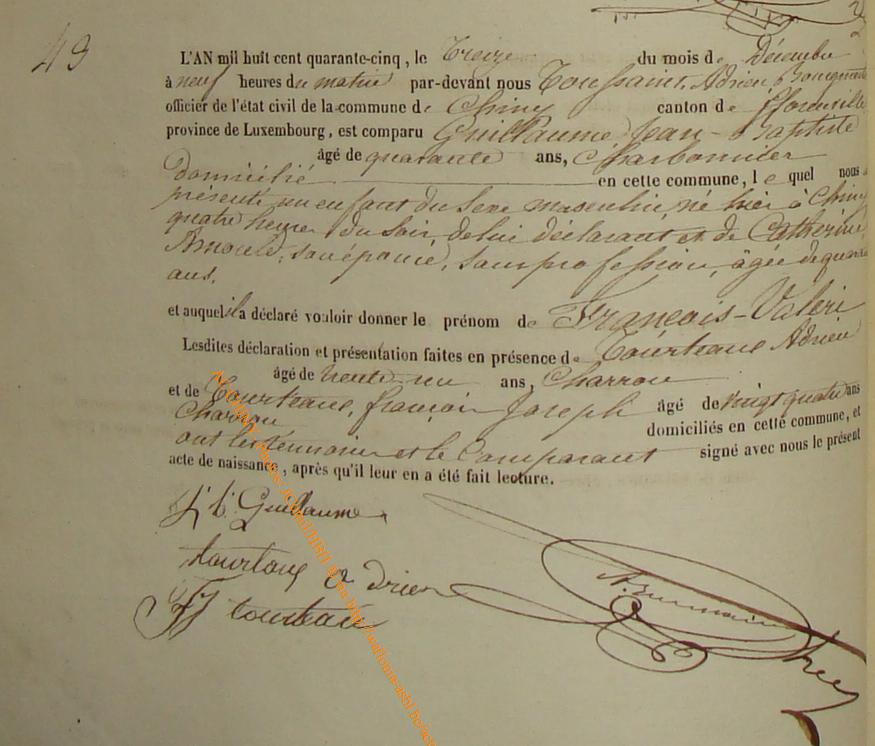 49
L'AN mil huit cent quarante-cinq, le Treize du mois de Décembre
à neuf heures du matin par-devant nous Toussaint, Adrien
officier de l'état civil de la commune de Chiny canton de Florenville
province de Luxembourg, est comparu Guillaume, Jean-Baptiste
âgé de quarante ans, Charbonnier
domicilié en cette commune, lequel nous a
présenté un enfant du sexe masculin, né hier à Chiny
quatre heures du soir, de lui déclarant et de Catherine
Arnould, son épouse, sans profession, âgée de quarante
ans,
et auquel il a déclaré vouloir donner le prénom de François-Valeri
Lesdites déclaration et présentation faites en présence de Tourteaux Adrien
âgé de trente-un ans, Charron
et de Tourteaux, françois Joseph âgé de vingt quatre ans
Charron domiciliés en cette commune, et
ont les témoins et le Comparant signé avec nous le présent
acte de naissance, après qu'il leur en a été fait lecture.
Guillaume
tourtaux adrien